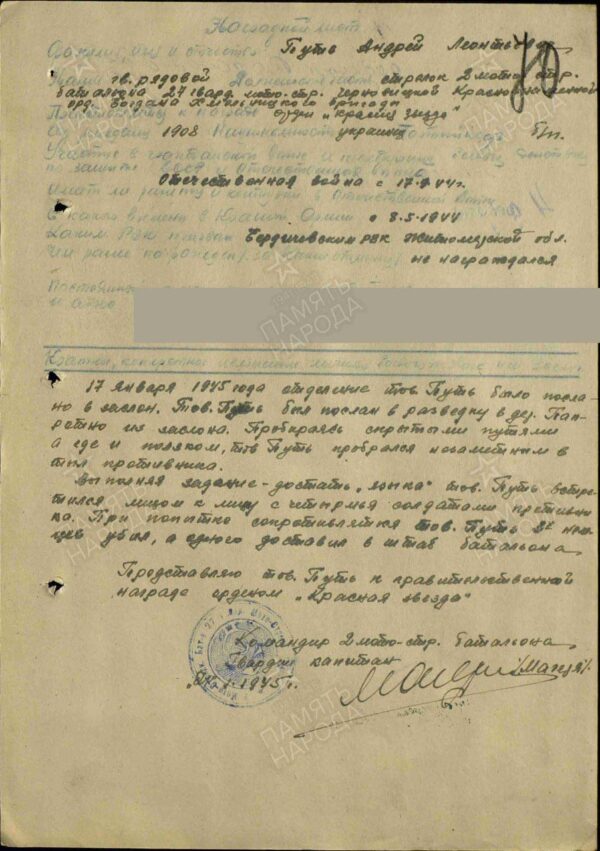 Наградной лист
Фамилия, имя и отчество Путь Андрей Леонтьевич
Звание гв. рядовой Должность стрелок 2 мото-стр.
батальона 27 гвард. мото-стр. Черновицкой Краснознаменной
орд. Богдана Хмельницкого бригады
Представляется к награде орден "Красная звезда"
Год рождения 1908 Национальность украинец б/п.
Участие в гражданской войне
по защите Отечественная война
Отечественная война с 17.9.44 г.
Имеет ли ранения и контузии в Отечественной войне
С какого времени в Красной Армии с 8.5.1944
Каким РВК призван Бердичевским РВК Житомирской обл.
Чем ранее награжден не награждался
Постоянный
Краткое, конкретное изложение личного
17 января 1945 года отделение тов. Путь было посла-
но в заслон. Тов. Путь был послан в разведку в дер. Пап-
ротно из заслона. Пробираясь скрытыми путями
а где и ползком, тов Путь пробрался незаметным в
тыл противника.
Выполняя задание - достать "языка" тов. Путь встре-
тился лицом к лицу с четырмья солдатами противни-
ка. При попытке сопротивлятся тов. Путь 3х нем-
цев убил, а одного доставил в штаб батальона
Представляю тов. Путь к правительственной
награде орденом "Красная звезда"
Командир 2 мото-стр. батальона
Гвардии капитан
1.1945 г.
ПАМЯТЬ НАРОДА